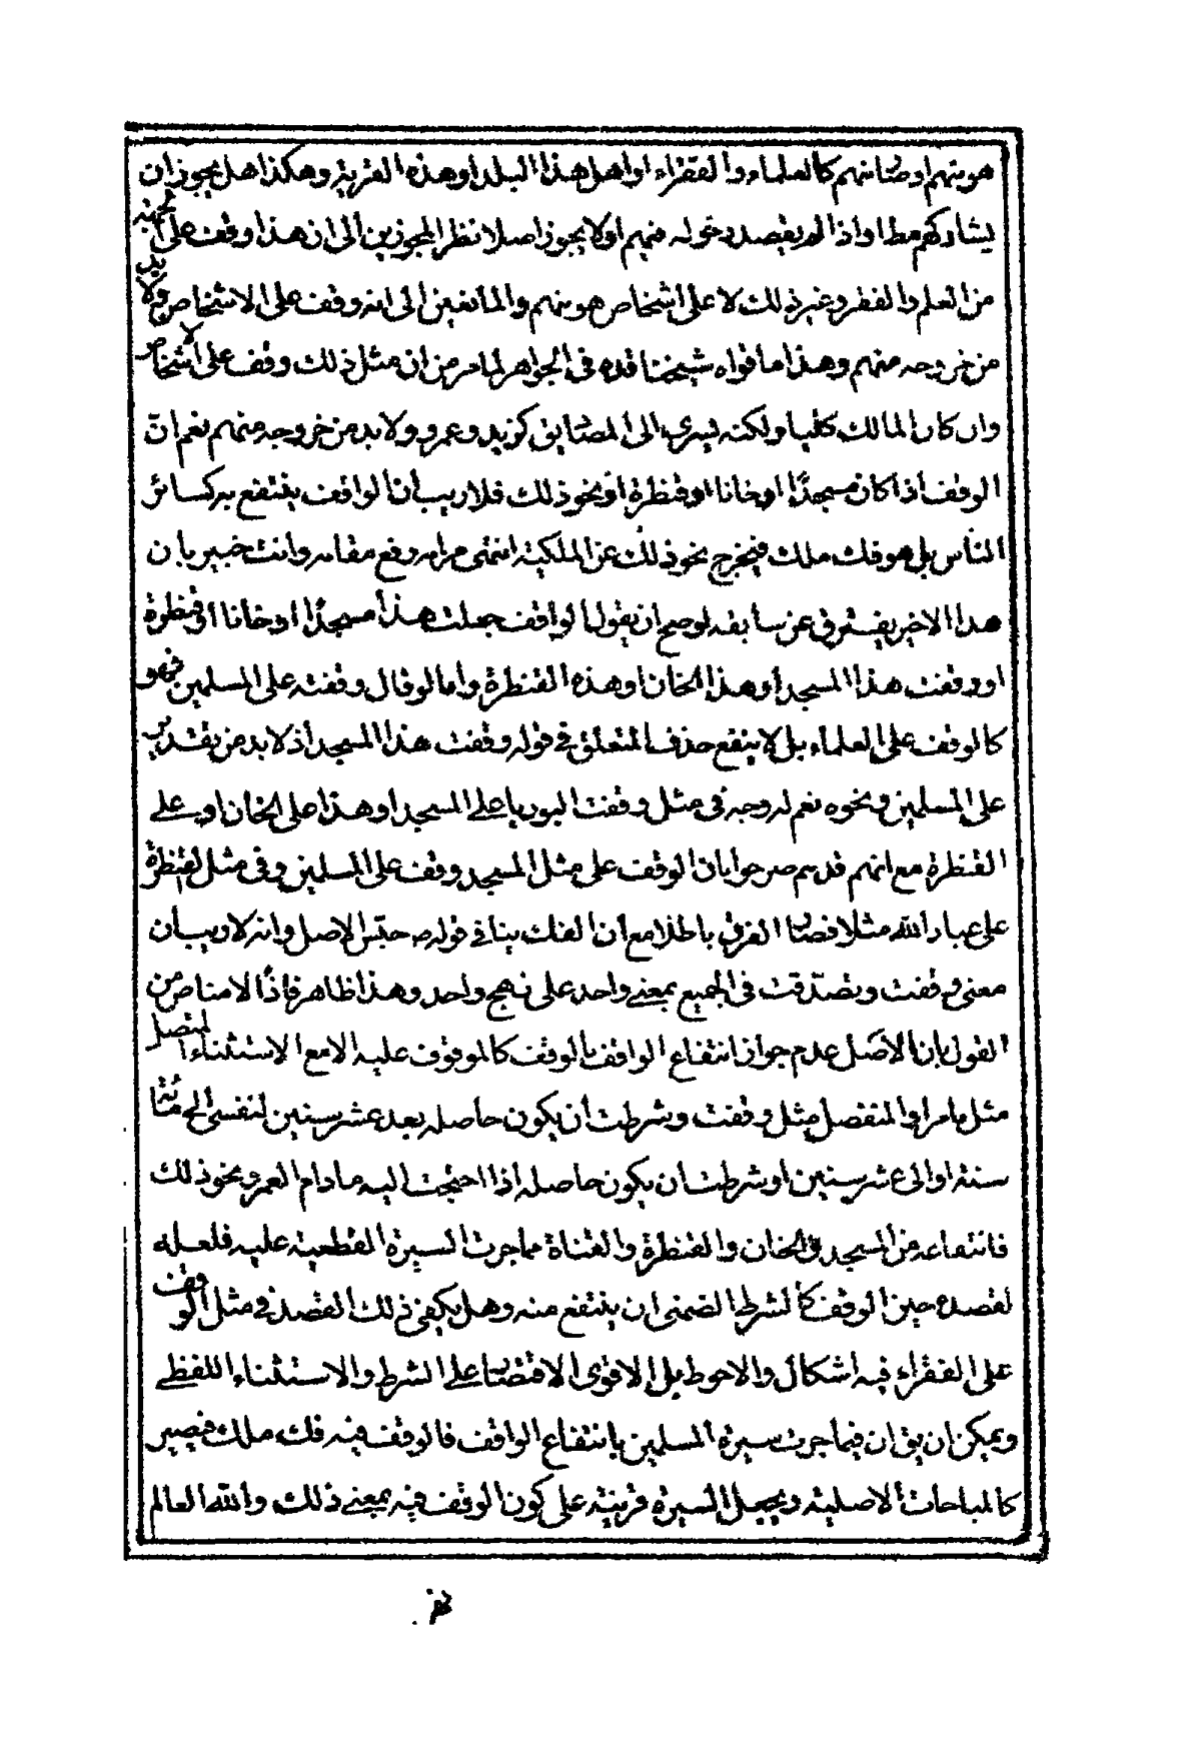 هو منهم او صار منهم كالعلماء والفقراء او اهل هذا البلد او هذه القرية وهكذا هل يجوز ان
يشاركهم مطا او اذا لم يقصد دخوله فيهم او لا يجوز اصلا نظر المجوزين الى ان هذا وقف على الجهة
من العلم والفقر وغير ذلك لا على اشخاص هو منهم والمانعين الى انه وقف على الاشخاص ولا بد
من خروجه منهم وهذا ما قواه شيخنا قده في الجواهر لما مر من ان مثل ذلك وقف على الاشخاص
وان كان المالك كليا ولكنه يسرى الى المصاديق كزيد وعمرو ولا بد من خروجه منهم نعم ان
الوقف اذا كان مسجدًا او خانا او قنطرة او نحو ذلك فلا ريب ان الواقف ينتفع به كسائر
الناس بل هو فك ملك فيخرج نحو ذلك عن الملكية انتهى مرامه رفع مقامه وانت خبير بان
هذا الاخير يفترق عن سابقه لو صح ان يقول الواقف جعلت هذا مسجدًا او خانا او قنطرة
او وقفت هذا المسجد او هذا الخان او هذه القنطرة واما لو قال وقفته على المسلمين فهو
كالوقف على العلماء بل لا ينفع حذف المتعلق في قوله وقفت هذا المسجد اذ لا بد من تقدير
على المسلمين ونحوه نعم له وجه في مثل وقفت البوريا على المسجد او هذا على الخان او على
القنطرة مع انهم قده صرحوا بان الوقف على مثل المسجد وقف على المسلمين وفي مثل القنطرة
على عباد الله مثلا فصار الفرق باطلا مع ان الفك ينافي قوله ص حبّس الاصل وانه لا ريب ان
معنى وقفت وتصدّقت في الجميع بمعنى واحد على نهج واحد وهذا ظاهر فاذًا لا مناص من
القول بان الاصل عدم جواز انتفاع الواقف بالوقف كالموقوف عليه الا مع الاستثناء المتصل
مثل ما مر او المنفصل مثل وقفت وشرطت ان يكون حاصله بعد عشر سنين لنفسي الى مائة
سنة او الى عشر سنين او شرطت ان يكون حاصله اذا احتجت اليه ما دام العمر ونحو ذلك
فانتفاعه من المسجد والخان والقنطرة والقناة مما جرت السيرة القطعية عليه فلعله
لقصده حين الوقف كالشرط الضمني ان ينتفع منه وهل يكفي ذلك القصد في مثل الوقف
على الفقراء فيه اشكال والاحوط بل الاقوى الاقتصار على الشرط والاستثناء اللفظي
ويمكن ان يق ان فيما جرت سيرة المسلمين بانتفاع الواقف فالوقف فيه فك ملك فيصير
كالمباحات الاصلية ويجعل السيرة قرينة على كون الوقف فيه بمعنى ذلك والله العالم